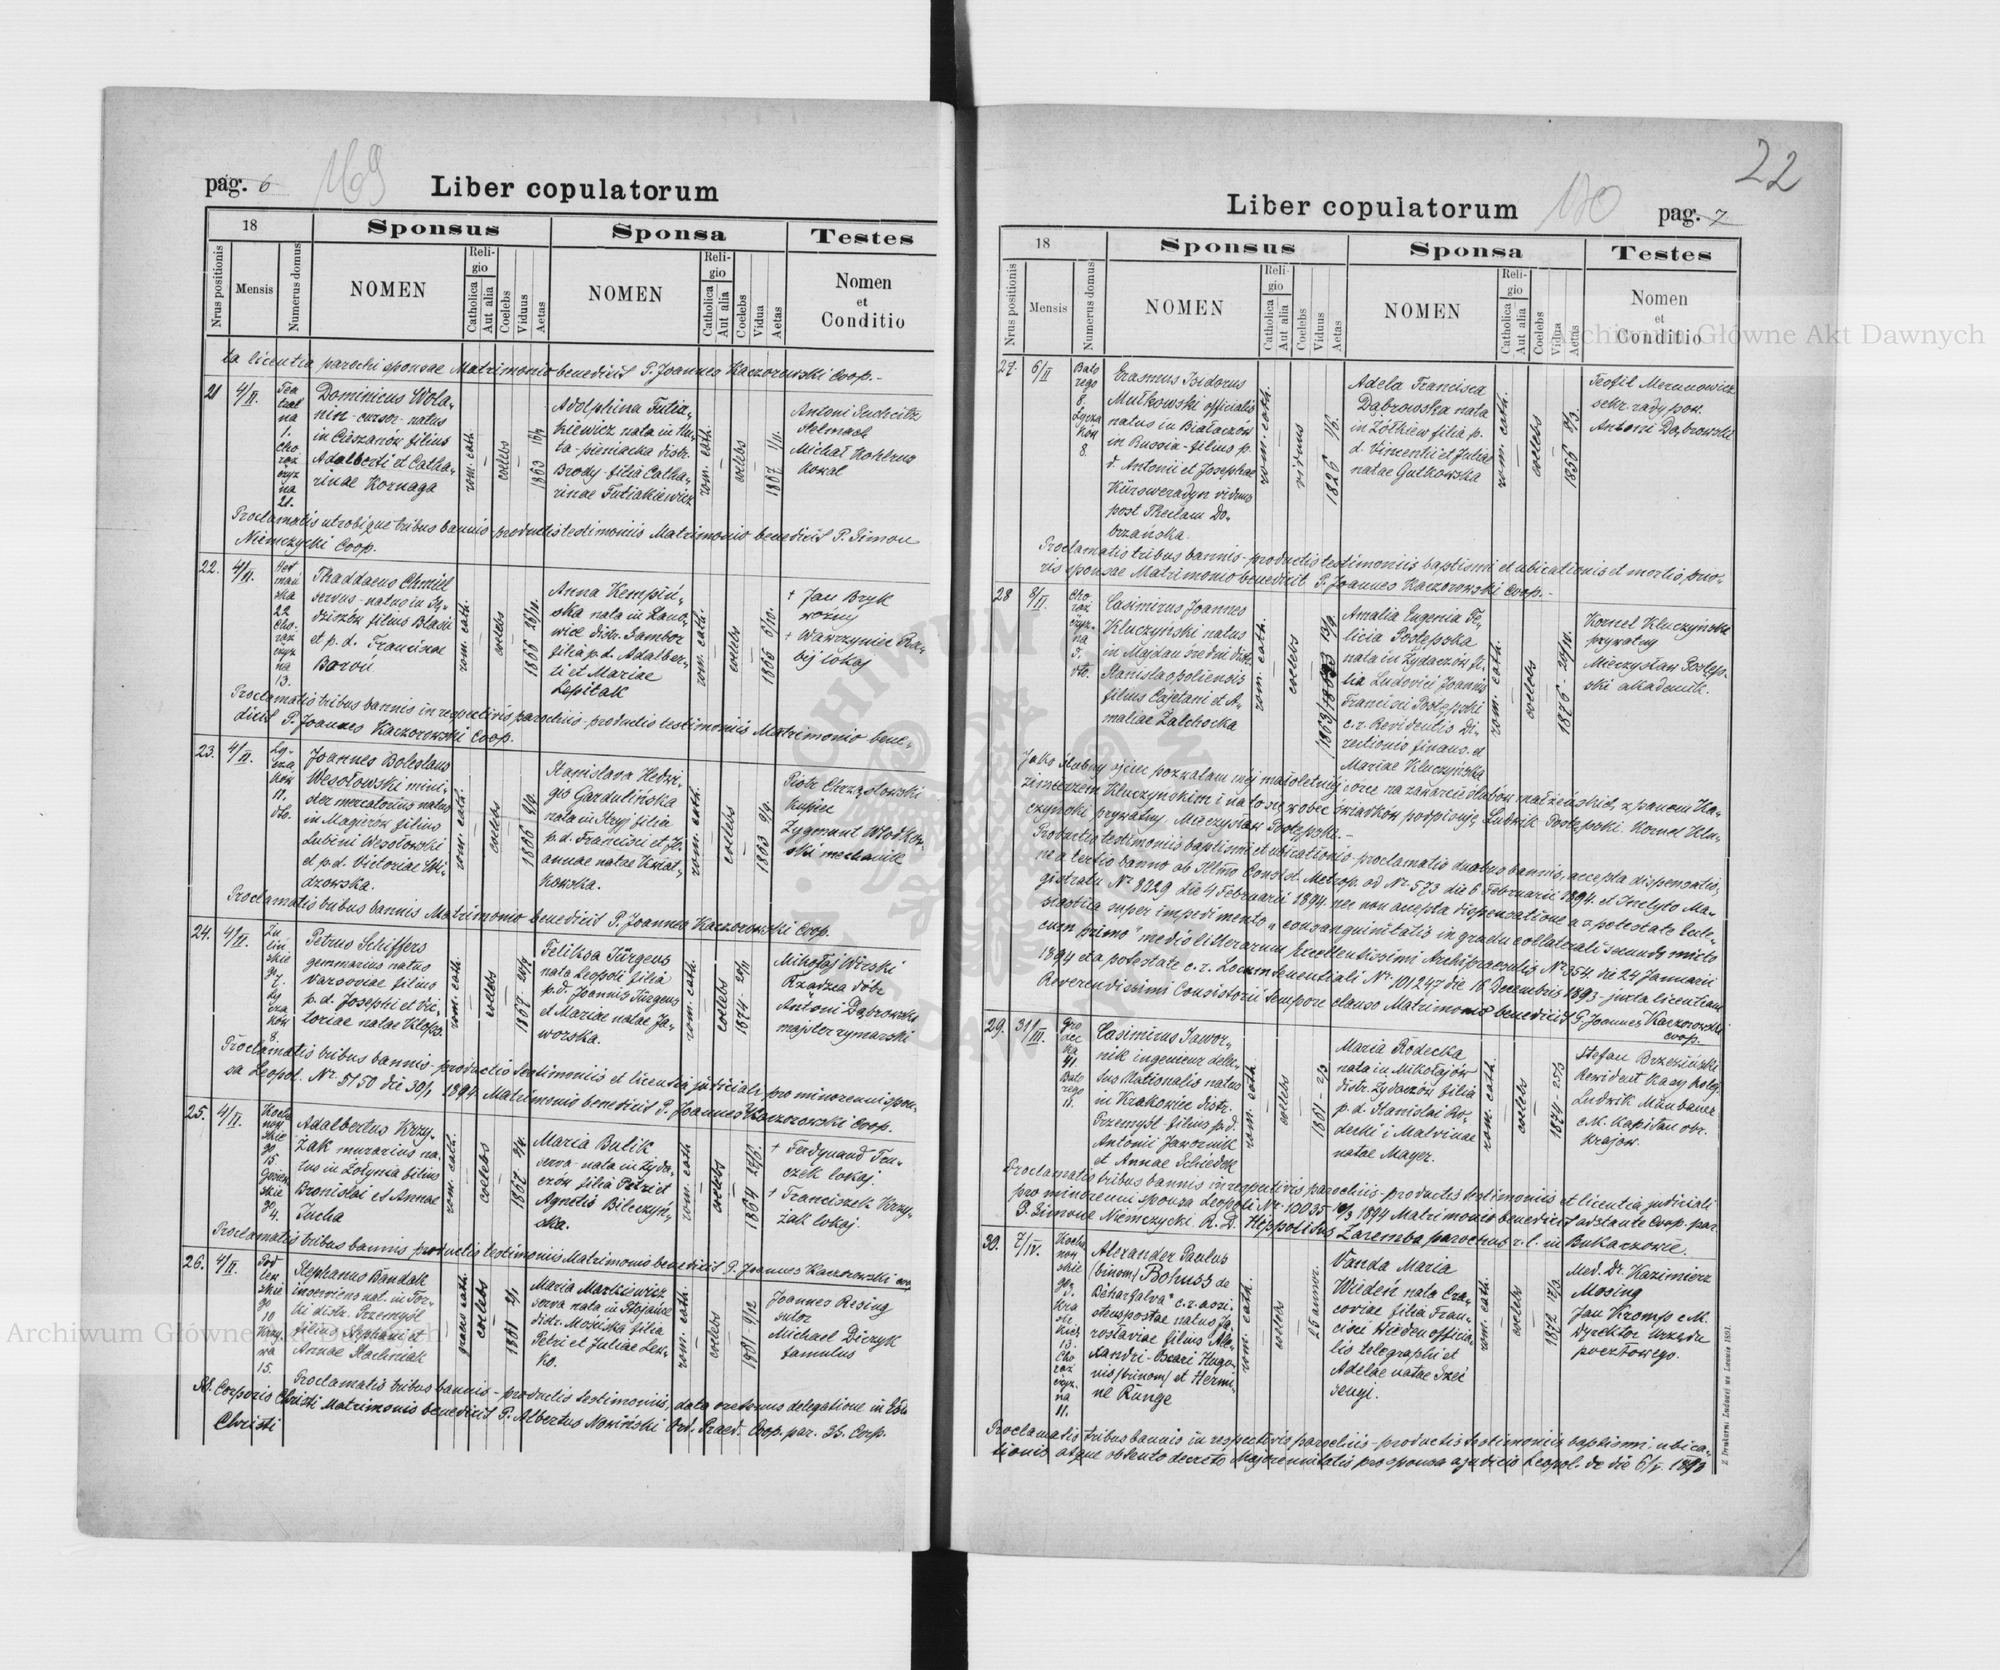 pag. 6
169
Liber copulatorum
18
Sponsus
Sponsa
Testes
Nrus positionis
Mensis
Numerus domus
NOMEN
Religio
Catholica
Aut alia
Coelebs
Viduus
Aetas
NOMEN
Religio
Catholica
Aut alia
Coelebs
Vidua
Aetas
Nomen
et
Conditio
ta licentia parochi sponsae Matrimonio benedixit P. Joannes Kaczorowski Coop.-
21
4/II.
Teatralna
1.
Chorążczyzna
21.
Dominicus Wola-
nin - cursor - natus
in Cieszanów filius
Adalberti et Catha-
rinae Kornaga
rom. cath.
coelebs
1863
Adolphina Futia-
kiewicz nata in Hu-
ta - pieniacka distr.
Brody - filia Catha-
rinae Futiakiewicz
rom. cath.
coelebs
1867 1/11.
Antoni Suchcitz
Stelmach
Michał Kohlrus
kowal
Proclamatis utrobique tribus bannis - productis testimoniis Matrimonio benedixit P. Simon
Niemczycki Coop.
22.
4/II.
Hetmańska
22
Chorążczyzna
13.
Thaddaeus Chmiel
servus - natus in Dy-
dziszów filius Blasii
et p. d. Franciscae
Baroń
rom. cath.
coelebs
1866 26/10.
Anna Kempiń-
ska nata in Łano-
wice distr. Sambor
filia p.d. Adalber-
ti et Mariae
Lepitak
rom. cath.
coelebs
1866 6/10.
+ Jan Bryk
woźny
+ Wawrzyniec Ra-
bij lokaj
Proclamatis tribus bannis in respectivis parochiis - productis testimoniis Matrimonio bene-
dixit P. Joannes Kaczorowski Coop.
23.
4/II.
Łyczaków
11.
dto.
Joannes Boleslaus
Wesołowski mini-
ster mercatorius natus
in Magierów filius
Lubini Wesołowski
et p.d. Victoriae Wi-
dzowska.
rom. cath.
coelebs
1866
Stanislava Hedvi-
gis Gardulińska
nata in Stryj filia
p.d. Francisci et Jo-
annae natae Kwiat-
kowska.
rom. cath.
coelebs
1863 9/9.
Piotr Chrząstowski
kupiec
Zygmunt Włodkow-
ski mechanik
Proclamatis tribus bannis Matrimonio benedixit P. Joannes Kaczorowski Coop.
24.
4/II.
Zulińskiego
7.
Łyczaków
8.
Petrus Schiffers
gemmarius natus
Varsoviae filius
p.d. Josephi et Vic-
toriae natae Kłossa
rom. cath.
coelebs
1867 - 24/7
Feliksa Jürgens
nata Leopoli filia
p.d. Joannis Jürgens
et Mariae natae Ja-
worska.
rom. cath.
coelebs
1874 20/11
Mikołaj Wirski
Rządzca dóbr
Antoni Dąbrowski
majster rymarski
Proclamatis tribus bannis - productis testimoniis et licentia judiciali pro minorenni spon-
sa Leopol. Nr. 5150 die 30/1 1894 Matrimonio benedixit P. Joannes Kaczorowski Coop.
25.
4/II.
Kochanowskiego
15
Gosiewskiego
4.
Adalbertus Krzy-
żak murarius na-
tus in Żołynia filius
Bronislai et Annae
Zucha
rom. cath.
coelebs
1867
Maria Bulik
serva - nata in Żyda-
czów filia Petri et
Agnetis Bilczyń-
ska.
rom. cath
coelebs
1864 24/6.
+ Ferdynand Ten-
czek lokaj.
+ Franciszek Krzy-
żak lokaj.
Proclamatis tribus bannis productis testimoniis Matrimonio benedixit P. Joannes Kaczorowski coop
26.
4/II.
Podlewskiego
10
Krzywa
15.
Stephanus Bandak
inserviens nat. in Tor-
ki distr. Przemyśl
filius Stephani et
Annae Stachniak
graec. cath.
coelebs
1861 2/1
Maria Markiewicz
serva nata in Stojańce
distr. Mościska filia
Petri et Juliae Len-
ko.
rom. cath.
coelebs
1861 - 9/12
Joannes Resing
sutor
Michael Diczyk
famulus
Proclamatis tribus bannis - productis testimoniis, data oretenus delegatione in Eccl.
SS. Corporis Christi Matrimonio benedixit P. Albertus Nowiński Ord. Praed. Coop. par. SS. Corp.
Christi
22
Liber copulatorum
170
pag. 7
18
Sponsus
Sponsa
Testes
Nrus positionis
Mensis
Numerus domus
NOMEN
Religio
Catholica
Aut alia
Coelebs
Viduus
Aetas
NOMEN
Religio
Catholica
Aut alia
Coelebs
Vidua
Aetas
Nomen
et
Conditio
27.
6/II
Batorego
8.
Łyczaków
8
Erasmus Isidorus
Mułkowski officialis
natus in Białaczów
in Russia - filius p.
d. Antonii et Josephae
Kürsweradyn viduus
post Theclam Do-
brzańska.
rom. cath.
viduus
1826 1/6.
Adela Francisca
Dąbrowska nata
in Żółkiew filia p.
d. Vincentii et Juliae
natae Gutkowska
rom. cath.
coelebs
1856 8/3.
Teofil Merunowicz
sekr. rady pow.
Antoni Dąbrowski
Proclamatis tribus bannis - productis testimoniis baptismi et ubicationis et mortis prio-
ris sponsae Matrimonio benedixit P. Joannes Kaczorowski Coop.-
28
8/II.
Chorążczyzna
5.
dto.
Casimirus Joannes
Kluczyński natus
in Majdan średni distr.
Stanislaopoliensis
filius Cajetani et A-
maliae Zalchocka
rom. cath.
coelebs
1863/1863 13/9.
Amalia Eugenia Fe-
licia Postępska
nata in Żydaczów fi-
lia Ludovici Joannis
Francisci Postępski
c.r. Revidentis Di-
rectionis finans. et
Mariae Kluczyńska
rom. cath.
coelebs
1876 - 24/10.
Kornel Kluczyński
prywatny
Mieczysław Postęp-
ski akademik.
Jako ślubny ojciec pozwalam mej małoletniej córce na zawarcie ślubów małżeńskich z panem Ka-
zimierzem Kluczyńskim i na to się wobec świadków podpisuję Ludwik Postępski. Kornel Klu-
czyński prywatny Mieczysław Postępski.-
Productis testimoniis baptismi et ubicationis - proclamatis duobus bannis, accepta dispensatio-
ne a tertio banno ab Illmo Consist. Metrop. od Nr. 573 die 6 Februarii 1894. et Inclyto Ma-
gistratu Nr 8029 die 4 Februarii 1894. nec non accepta dispensatione a potestate Eccle-
siastica super impedimento "consanguinitatis in gradu collaterali secundo mixto
cum primo" medio litterarum Excellentissimi Archipraesulis Nr 354 die 24 Januarii
1894 et a potestate c.r. Locumtenentiali Nr. 101247 die 18 Decembris 1893 - juxta licentiam
Reverendissimi Consistorii tempore clauso Matrimonio benedixit P. Joannes Kaczorowski
coop.
29.
31/III.
Gródecka
41.
Batorego
11.
Casimirus Jawor-
nik ingenieur adlec-
tus Nationalis natus
in Krakowiec distr.
Przemyśl - filius p.d.
Antonii Jawornik
et Annae Schiedek
rom. cath.
coelebs
1861 - 2/3
Maria Rodecka
nata in Mikołajów
distr. Żydaczów filia
p.d. Stanislai Ro-
decki i Malvinae
natae Mayer.
rom. cath.
coelebs
1874 - 25/3
Stefan Brzeziński
Rewident Kasy kolej.
Ludwik Münbauer
c.k. Kapitan obr.
krajow.
Proclamatis tribus bannis in respectivis parochiis - productis testimoniis et licentia judiciali
pro minorenni sponsa Leopoli Nr. 10035 - 10/3 1894 Matrimonio benedixit adstante Coop. par.
P. Simone Niemczycki. R. D. Hippolitus Zaremba parochus r. l. in Bukaczowie.
30.
7/IV.
Kochanowskiego
5.
Krasickich
13.
Chorążczyzna
11.
Alexander Paulus
(binom) Bohuss de
Béharfalva c.r. assi-
stens postae natus Ja-
roslaviae filius Ale-
xandri - Oscari Hugo-
nis (trinom) et Hermi-
ne Runge
rom. cath.
coelebs
25 annor.
Vanda Maria
Wiedeń nata Cra-
coviae filia Fran-
cisci Wieden officia-
lis telegraphi et
Adelae natae Szei
senyi.
rom. cath.
coelebs
1872 17/3
Med. Dr. Kazimierz
Mosing
Jan Kromp c.k.
Dyrektor urzędu
pocztowego.
Proclamatis tribus bannis in respectivis parochiis - productis testimoniis baptismi, ubica-
tionis atque obtento decreto Majorennitatis pro sponsa a judicio Leopol. de die 6/V. 1893
Z Drukarni Ludowej we Lwowie 1891.
Archiwum Główne Akt Dawnych
Archiwum Główne Akt Dawnych